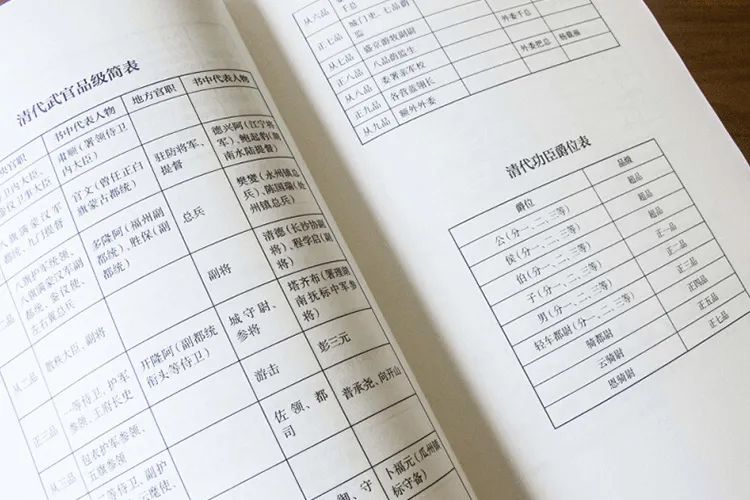 清代武官品级简表
书中代表人物 地方官职 书中代表人物
肃顺(署领侍卫内大臣) 驻防将军、提督 德兴阿(江宁将军)、鲍起豹(湖南水陆提督)
官文(曾任正白旗蒙古都统)
八旗满蒙汉军都统、九门提督 总兵 樊燮(永州镇总兵)、陈国瑞(处州镇总兵)
八旗护军统领、八旗满蒙汉军副都统、銮仪使、左右翼总兵 多隆阿(福州副都统)、胜保(副都统) 副将 清德(长沙协副将)、程学启(副将)
从二品 散秩大臣、副将 城守尉、参将 塔齐布(署理湖南抚标中军参将)
正三品 一等侍卫、护军参领、王府长史 开隆阿(副都统衔头等侍卫) 游击 彭三元
从三品 包衣护军参领、五旗参领 佐领、都司 普承尧、向开山
二等侍卫、副护
卜福元(瓜州镇标守备)
从六品 千总
正七品 城门吏、七品蔚监
从七品 盛京游牧副尉 外委千总
正八品 八品蔚监生
从八品 委署亲军校 外委把总 杨载福
正九品 各营蓝翎长
从九品 额外外委
清代功臣爵位表
爵位 品级
公(分一、二、三等) 超品
侯(分一、二、三等) 超品
伯(分一、二、三等) 超品
子(分一、二、三等) 正一品
男(分一、二、三等) 正二品
轻车都尉(分一、二、三等) 正三品
骑都尉 正四品
云骑尉 正五品
恩骑尉 正七品